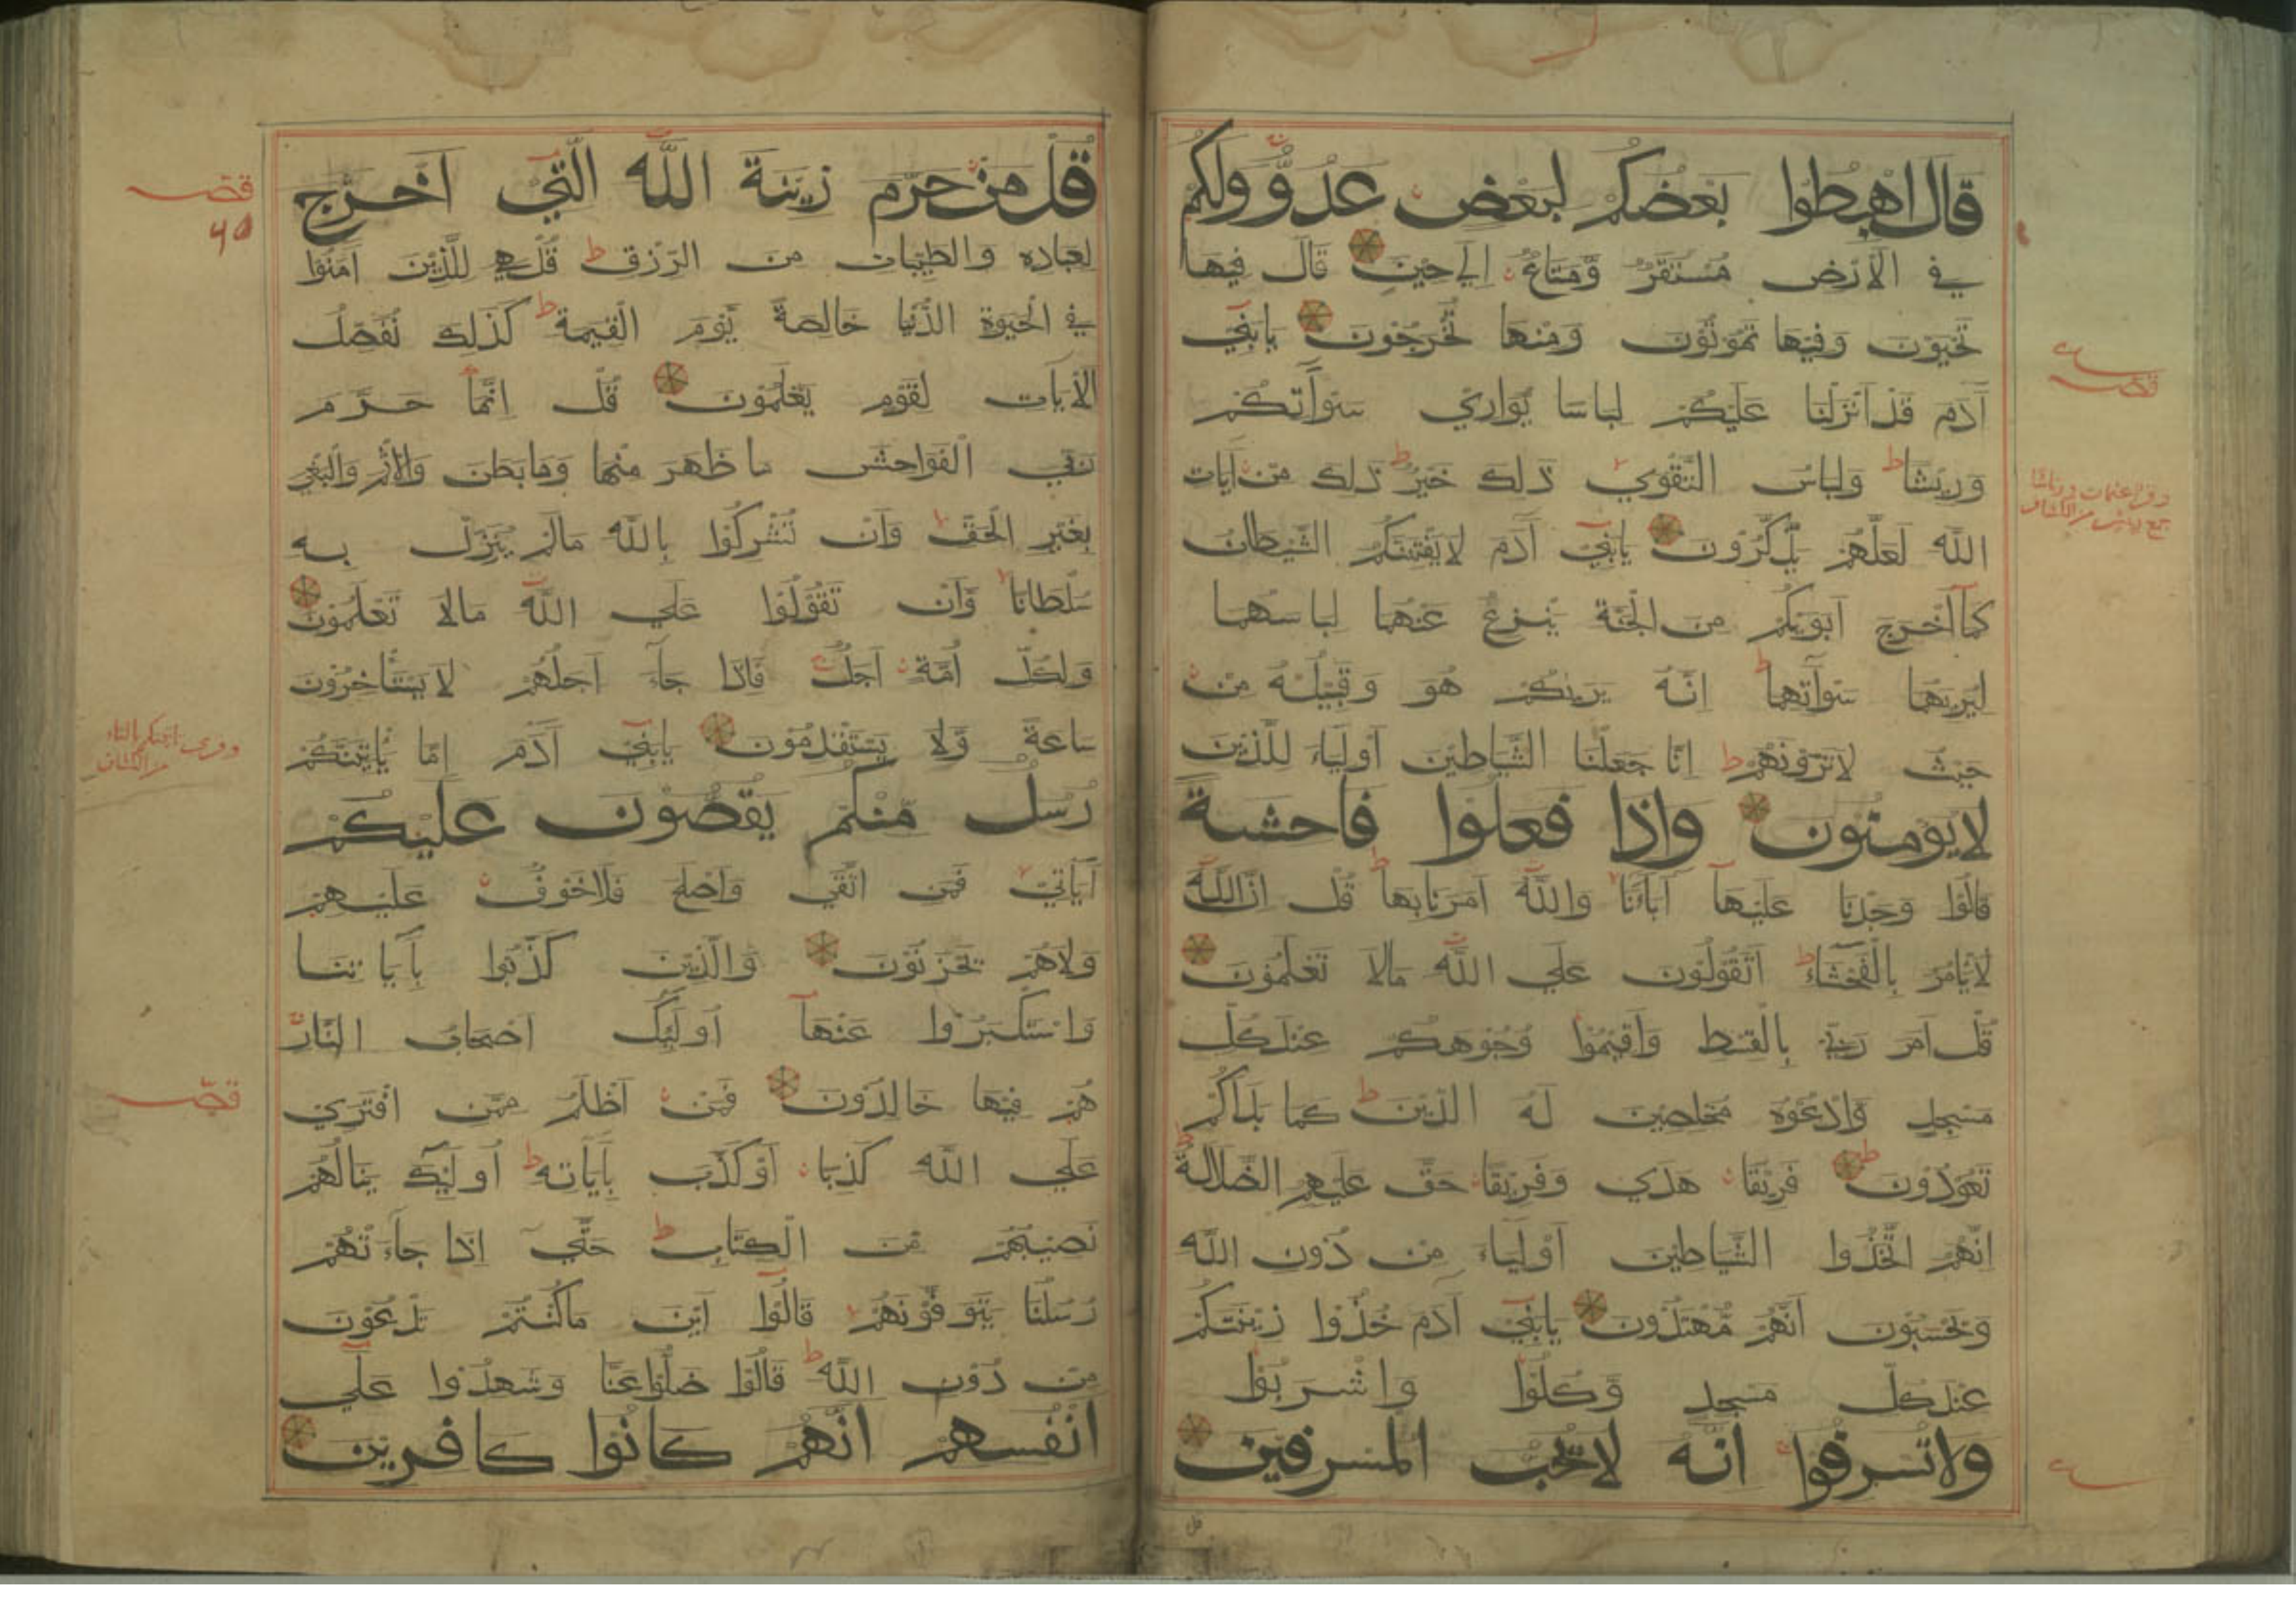 قال اهبطوا بعضكم لبعض عدو ولكم
في الارض مستقر ومتاع الي حين قال فيها
تحيون وفيها تموتون ومنها تخرجون يابني
آدم قد انزلنا عليكم لباسا يواري سوآتكم
وريشا ولباس التقوي ذلك خير ذلك من ايات
الله لعلهم يذكرون يابني آدم لايفتننكم الشيطان
كما اخرج ابويكم من الجنة ينزع عنهما لباسهما
ليريهما سوآتهما انه يريكم هو وقبيله من
حيث لاترونهم انا جعلنا الشياطين اولياء للذين
لايومنون واذا فعلوا فاحشة
قالوا وجدنا عليها آباءنا والله امرنا بها قل ان الله
لايامر بالفحشاء اتقولون علي الله مالا تعلمون
قل امر ربي بالقسط واقيموا وجوهكم عند كل
مسجد وادعوه مخلصين له الدين كما بداكم
تعودون فريقا هدي وفريقا حق عليهم الضلالة
انهم اتخذوا الشياطين اولياء من دون الله
وتحسبون انهم مهتدون يابني آدم خذوا زينتكم
عند كل مسجد وكلوا واشربوا
ولاتسرفوا انه لا يحب المسرفين
قل من حرم زينة الله التي اخرج
لعباده والطيبات من الرزق قل هي للذين آمنوا
في الحيوة الدنيا خالصة يوم القيمة كذلك نفصل
الآيات لقوم يعلمون قل انما حرم
ربي الفواحش ما ظهر منها وما بطن والاثم والبغي
بغير الحق وان تشركوا بالله مالم ينزل به
سلطانا وان تقولوا علي الله مالا تعلمون
ولكل امة اجل فاذا جآء اجلهم لايستاخرون
ساعة ولا يستقدمون يابني آدم اما ياتينكم
رسل منكم يقصون عليكم
آياتي فمن اتقي واصلح فلاخوف عليهم
ولاهم يحزنون والذين كذبوا بآياتنا
واستكبروا عنها اولئك اصحاب النار
هم فيها خالدون فمن اظلم ممن افتري
علي الله كذبا او كذب بآياته اولئك ينالهم
نصيبهم من الكتاب حتي اذا جآءتهم
رسلنا يتوفونهم قالوا اين ماكنتم تدعون
من دون الله قالوا ضلوا عنا وشهدوا علي
انفسهم انهم كانوا كافرين